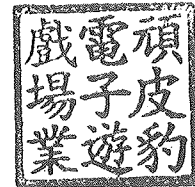 頑皮豹
電子遊
戲場業